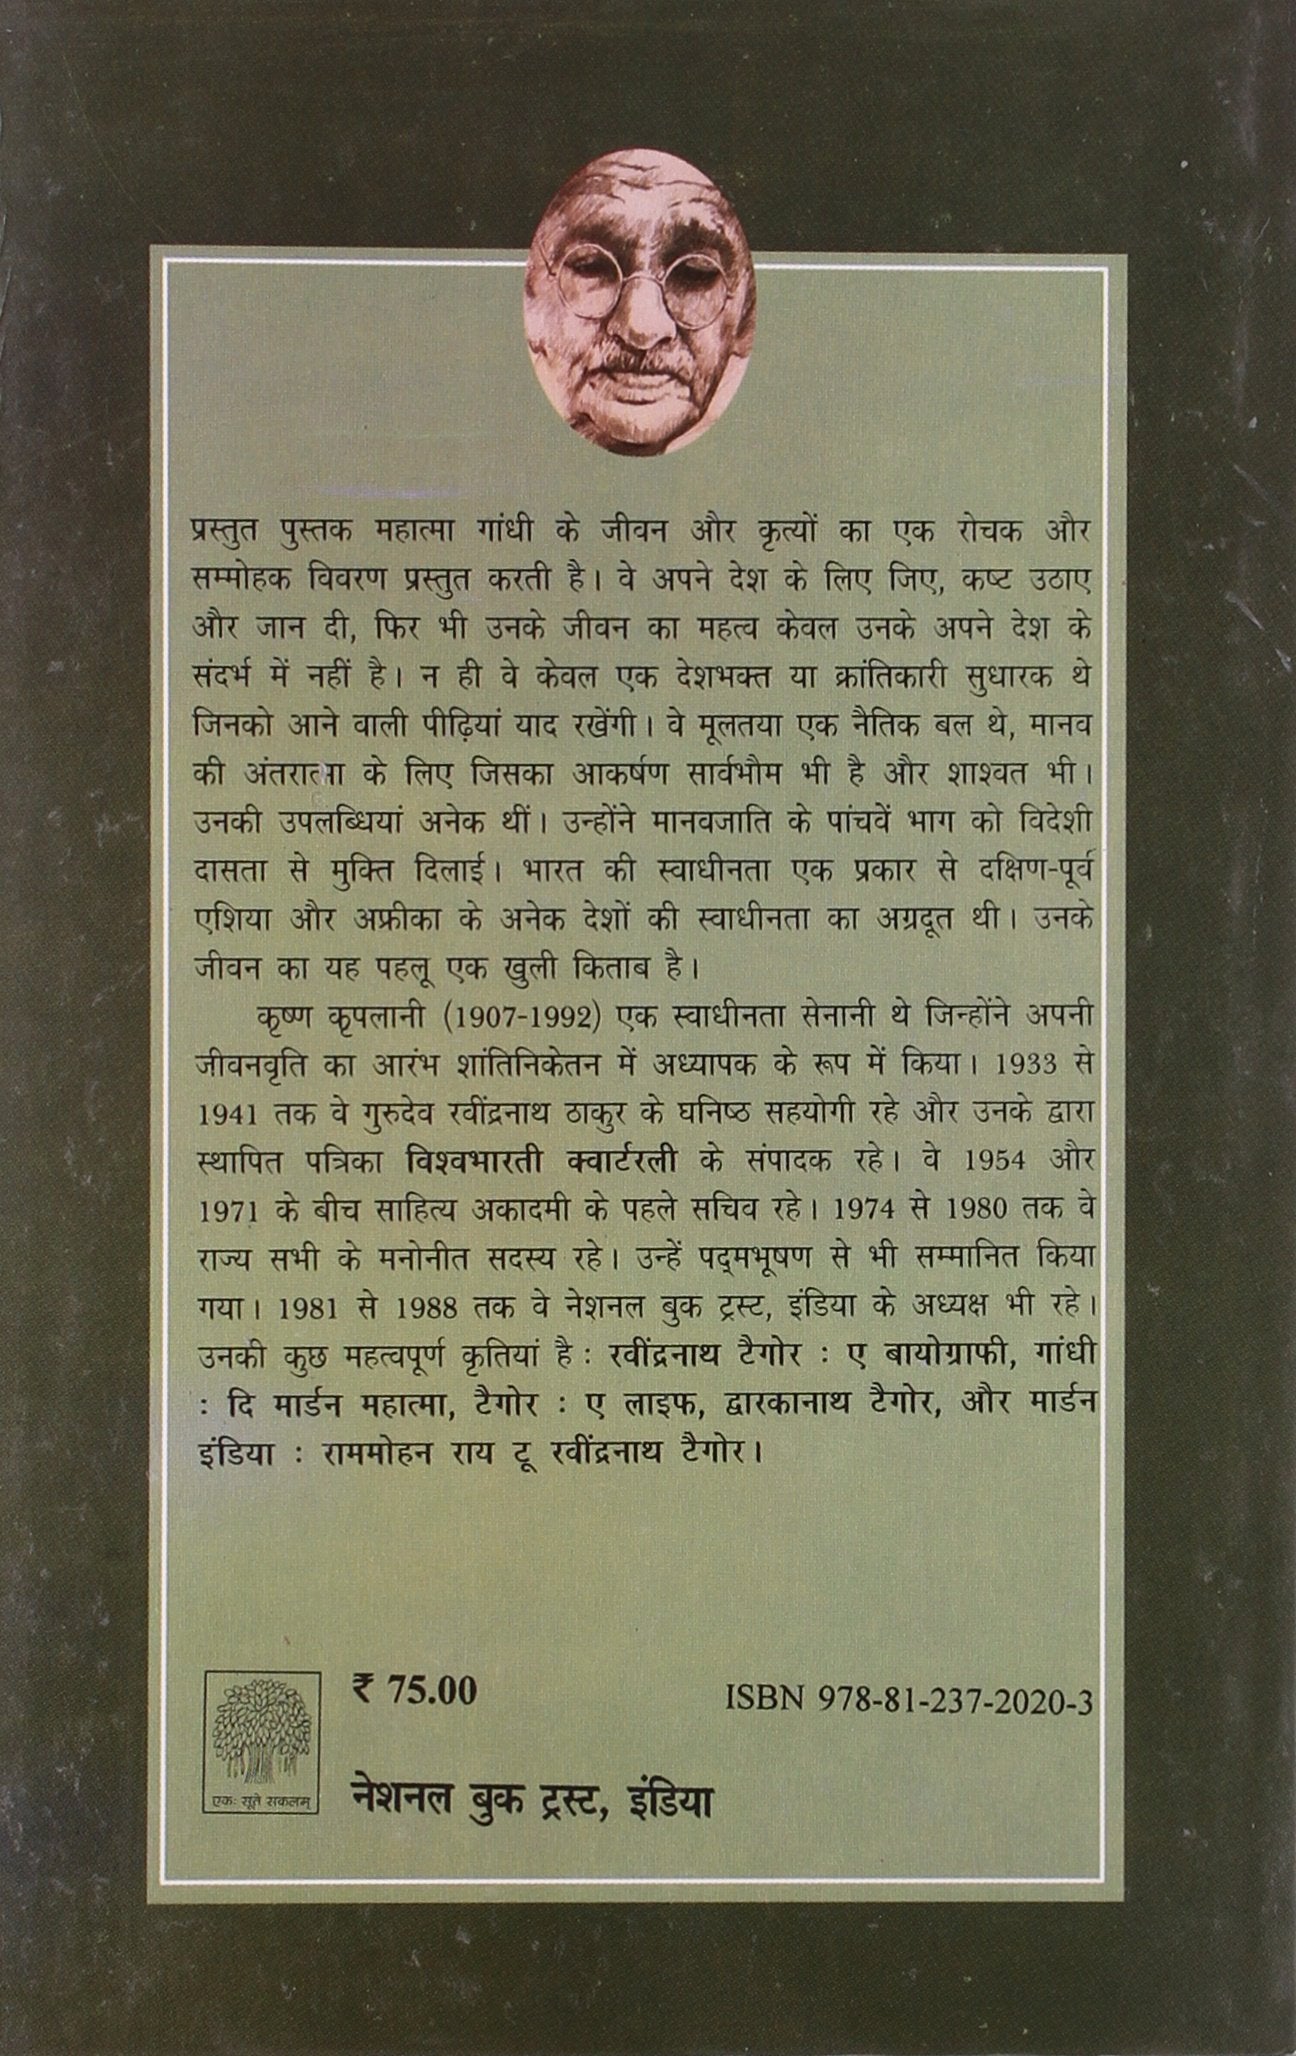 प्रस्तुत पुस्तक महात्मा गांधी के जीवन और कृत्यों का एक रोचक और
सम्मोहक विवरण प्रस्तुत करती है। वे अपने देश के लिए जिए, कष्ट उठाए
और जान दी, फिर भी उनके जीवन का महत्व केवल उनके अपने देश के
संदर्भ में नहीं है। न ही वे केवल एक देशभक्त या क्रांतिकारी सुधारक थे
जिनको आने वाली पीढ़ियां याद रखेंगी। वे मूलतया एक नैतिक बल थे, मानव
की अंतरात्मा के लिए जिसका आकर्षण सार्वभौम भी है और शाश्वत भी।
उनकी उपलब्धियां अनेक थीं। उन्होंने मानवजाति के पांचवें भाग को विदेशी
दासता से मुक्ति दिलाई। भारत की स्वाधीनता एक प्रकार से दक्षिण-पूर्व
एशिया और अफ्रीका के अनेक देशों की स्वाधीनता का अग्रदूत थी। उनके
जीवन का यह पहलू एक खुली किताब है।
कृष्ण कृपलानी (1907-1992) एक स्वाधीनता सेनानी थे जिन्होंने अपनी
जीवनवृति का आरंभ शांतिनिकेतन में अध्यापक के रूप में किया। 1933 से
1941 तक वे गुरुदेव रवींद्रनाथ ठाकुर के घनिष्ठ सहयोगी रहे और उनके द्वारा
स्थापित पत्रिका विश्वभारती क्वार्टरली के संपादक रहे। वे 1954 और
1971 के बीच साहित्य अकादमी के पहले सचिव रहे। 1974 से 1980 तक वे
राज्य सभी के मनोनीत सदस्य रहे। उन्हें पद्मभूषण से भी सम्मानित किया
गया। 1981 से 1988 तक वे नेशनल बुक ट्रस्ट, इंडिया के अध्यक्ष भी रहे।
उनकी कुछ महत्वपूर्ण कृतियां है : रवींद्रनाथ टैगोर : ए बायोग्राफी, गांधी
: दि मार्डन महात्मा, टैगोर : ए लाइफ, द्वारकानाथ टैगोर, और मार्डन
इंडिया : राममोहन राय टू रवींद्रनाथ टैगोर।
₹ 75.00
ISBN 978-81-237-2020-3
एकः सूते सकलम्
नेशनल बुक ट्रस्ट, इंडिया